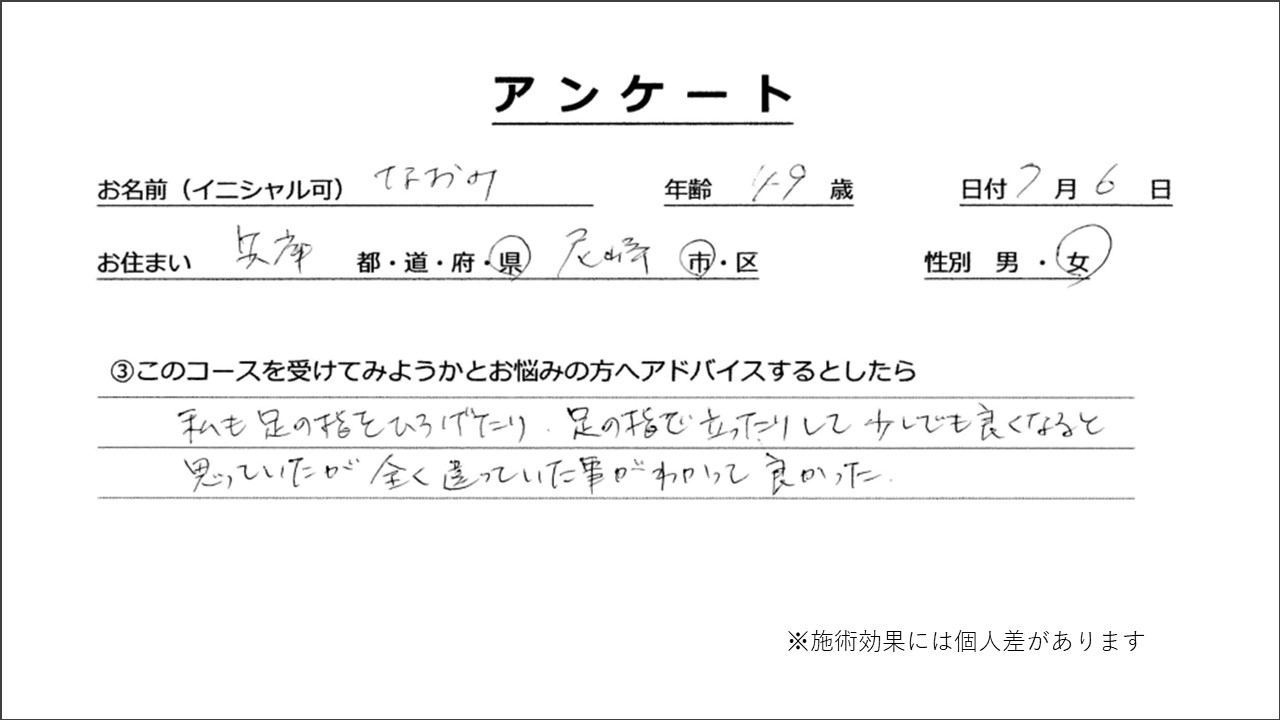 アンケート
お名前（イニシャル可） なおみ 年齢 49 歳 日付 7 月 6 日
お住まい 兵庫 都・道・府・県 尼崎 市・区 性別 男・女
③このコースを受けてみようかとお悩みの方へアドバイスするとしたら
私も足の指をひろげたり、足の指で立ったりして少しでも良くなると
思っていたが全く違っていた事がわかって良かった.
※施術効果には個人差があります